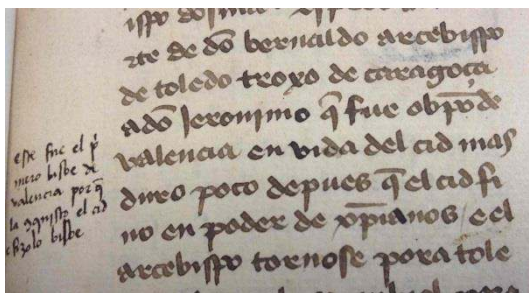 rte de dõ bernaldo arcebispo
de toledo troxo de caragoça
a dõ Jeronimo q̃ fue obp̃o de
valencia en vida del cid mas
duro poco depues q̃ el cid fi
no en poder de xp̃ianos e el
arcebispo tornose pora tole
este fue el p̃
mero bisbe de
valencia por q̃
la aquisto el cid
e fizolo bisbe